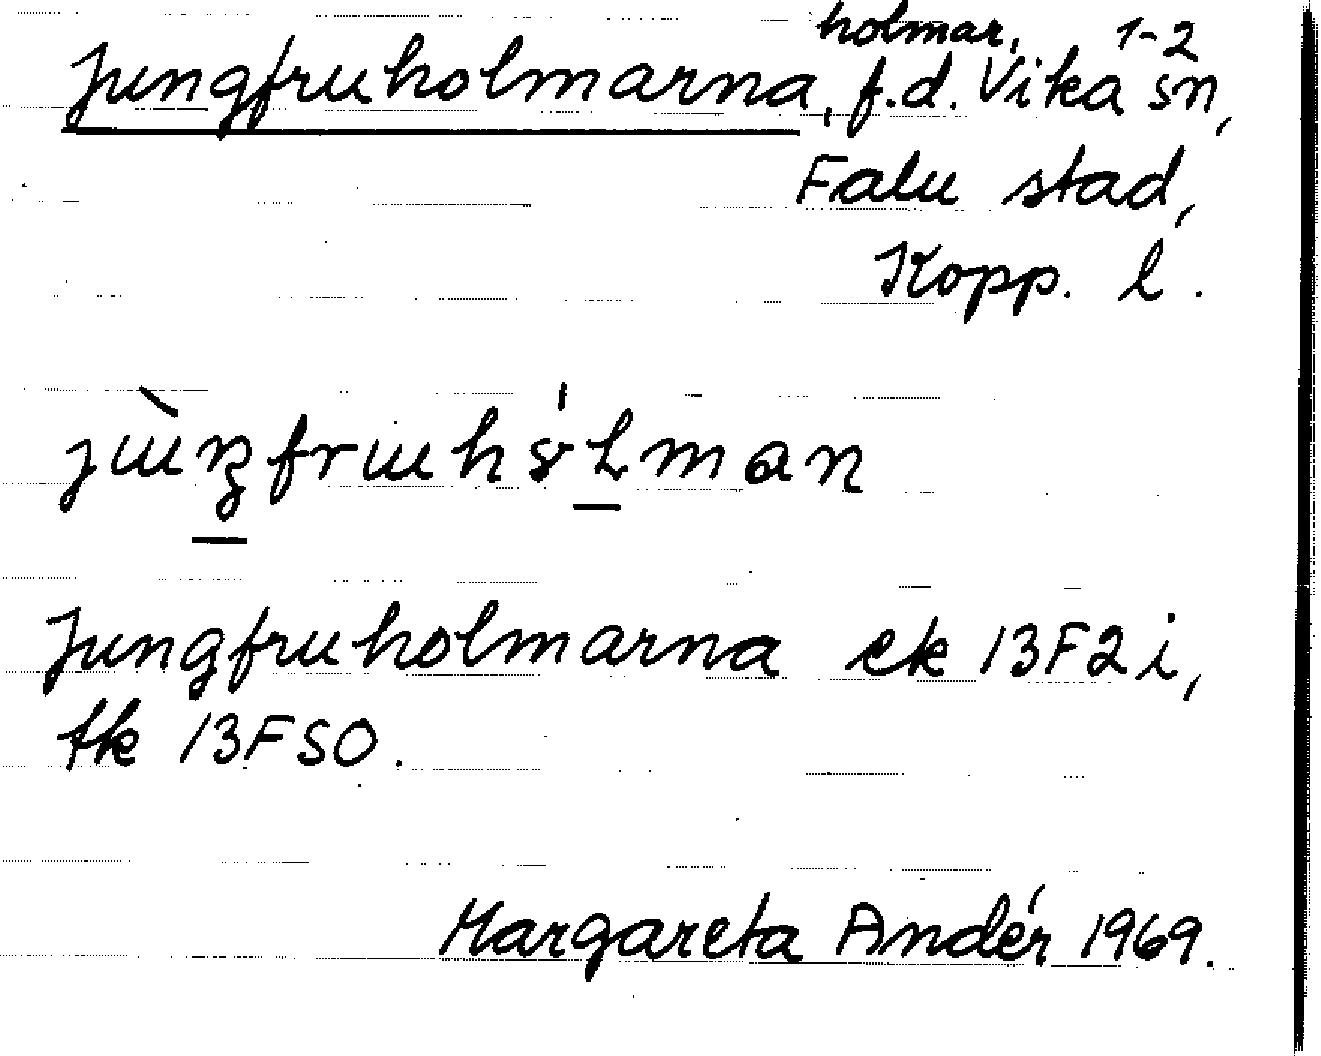 holmar, 1-2
Jungfruholmarna, f.d. Vika sn,
Falu stad,
Kopp. l.
Jungfruholmarna ek 13F2i,
tk 13FSO.
Margareta Andér 1969.